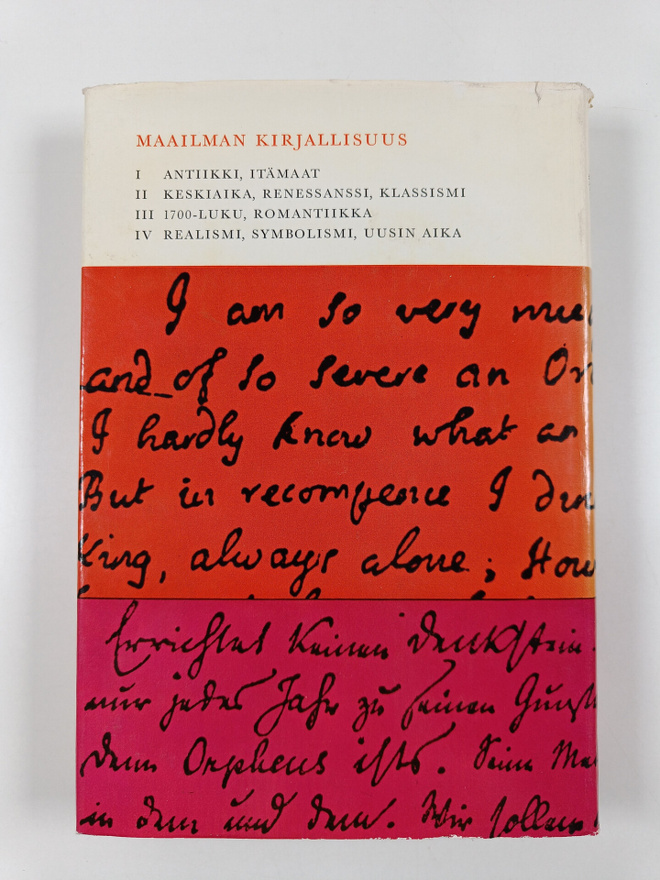 MAAILMAN KIRJALLISUUS
I ANTIIKKI, ITÄMAAT
II KESKIAIKA, RENESSANSSI, KLASSISMI
III 1700-LUKU, ROMANTIIKKA
IV REALISMI, SYMBOLISMI, UUSIN AIKA
I am so very
and of so severe an
I hardly know what an
But in recompence I
King, always alone;
Errichtet keinen Denkstein.
nur jedes Jahr zu seinen
Denn Orpheus ists. Seine
in dem und dem. Wir sollen